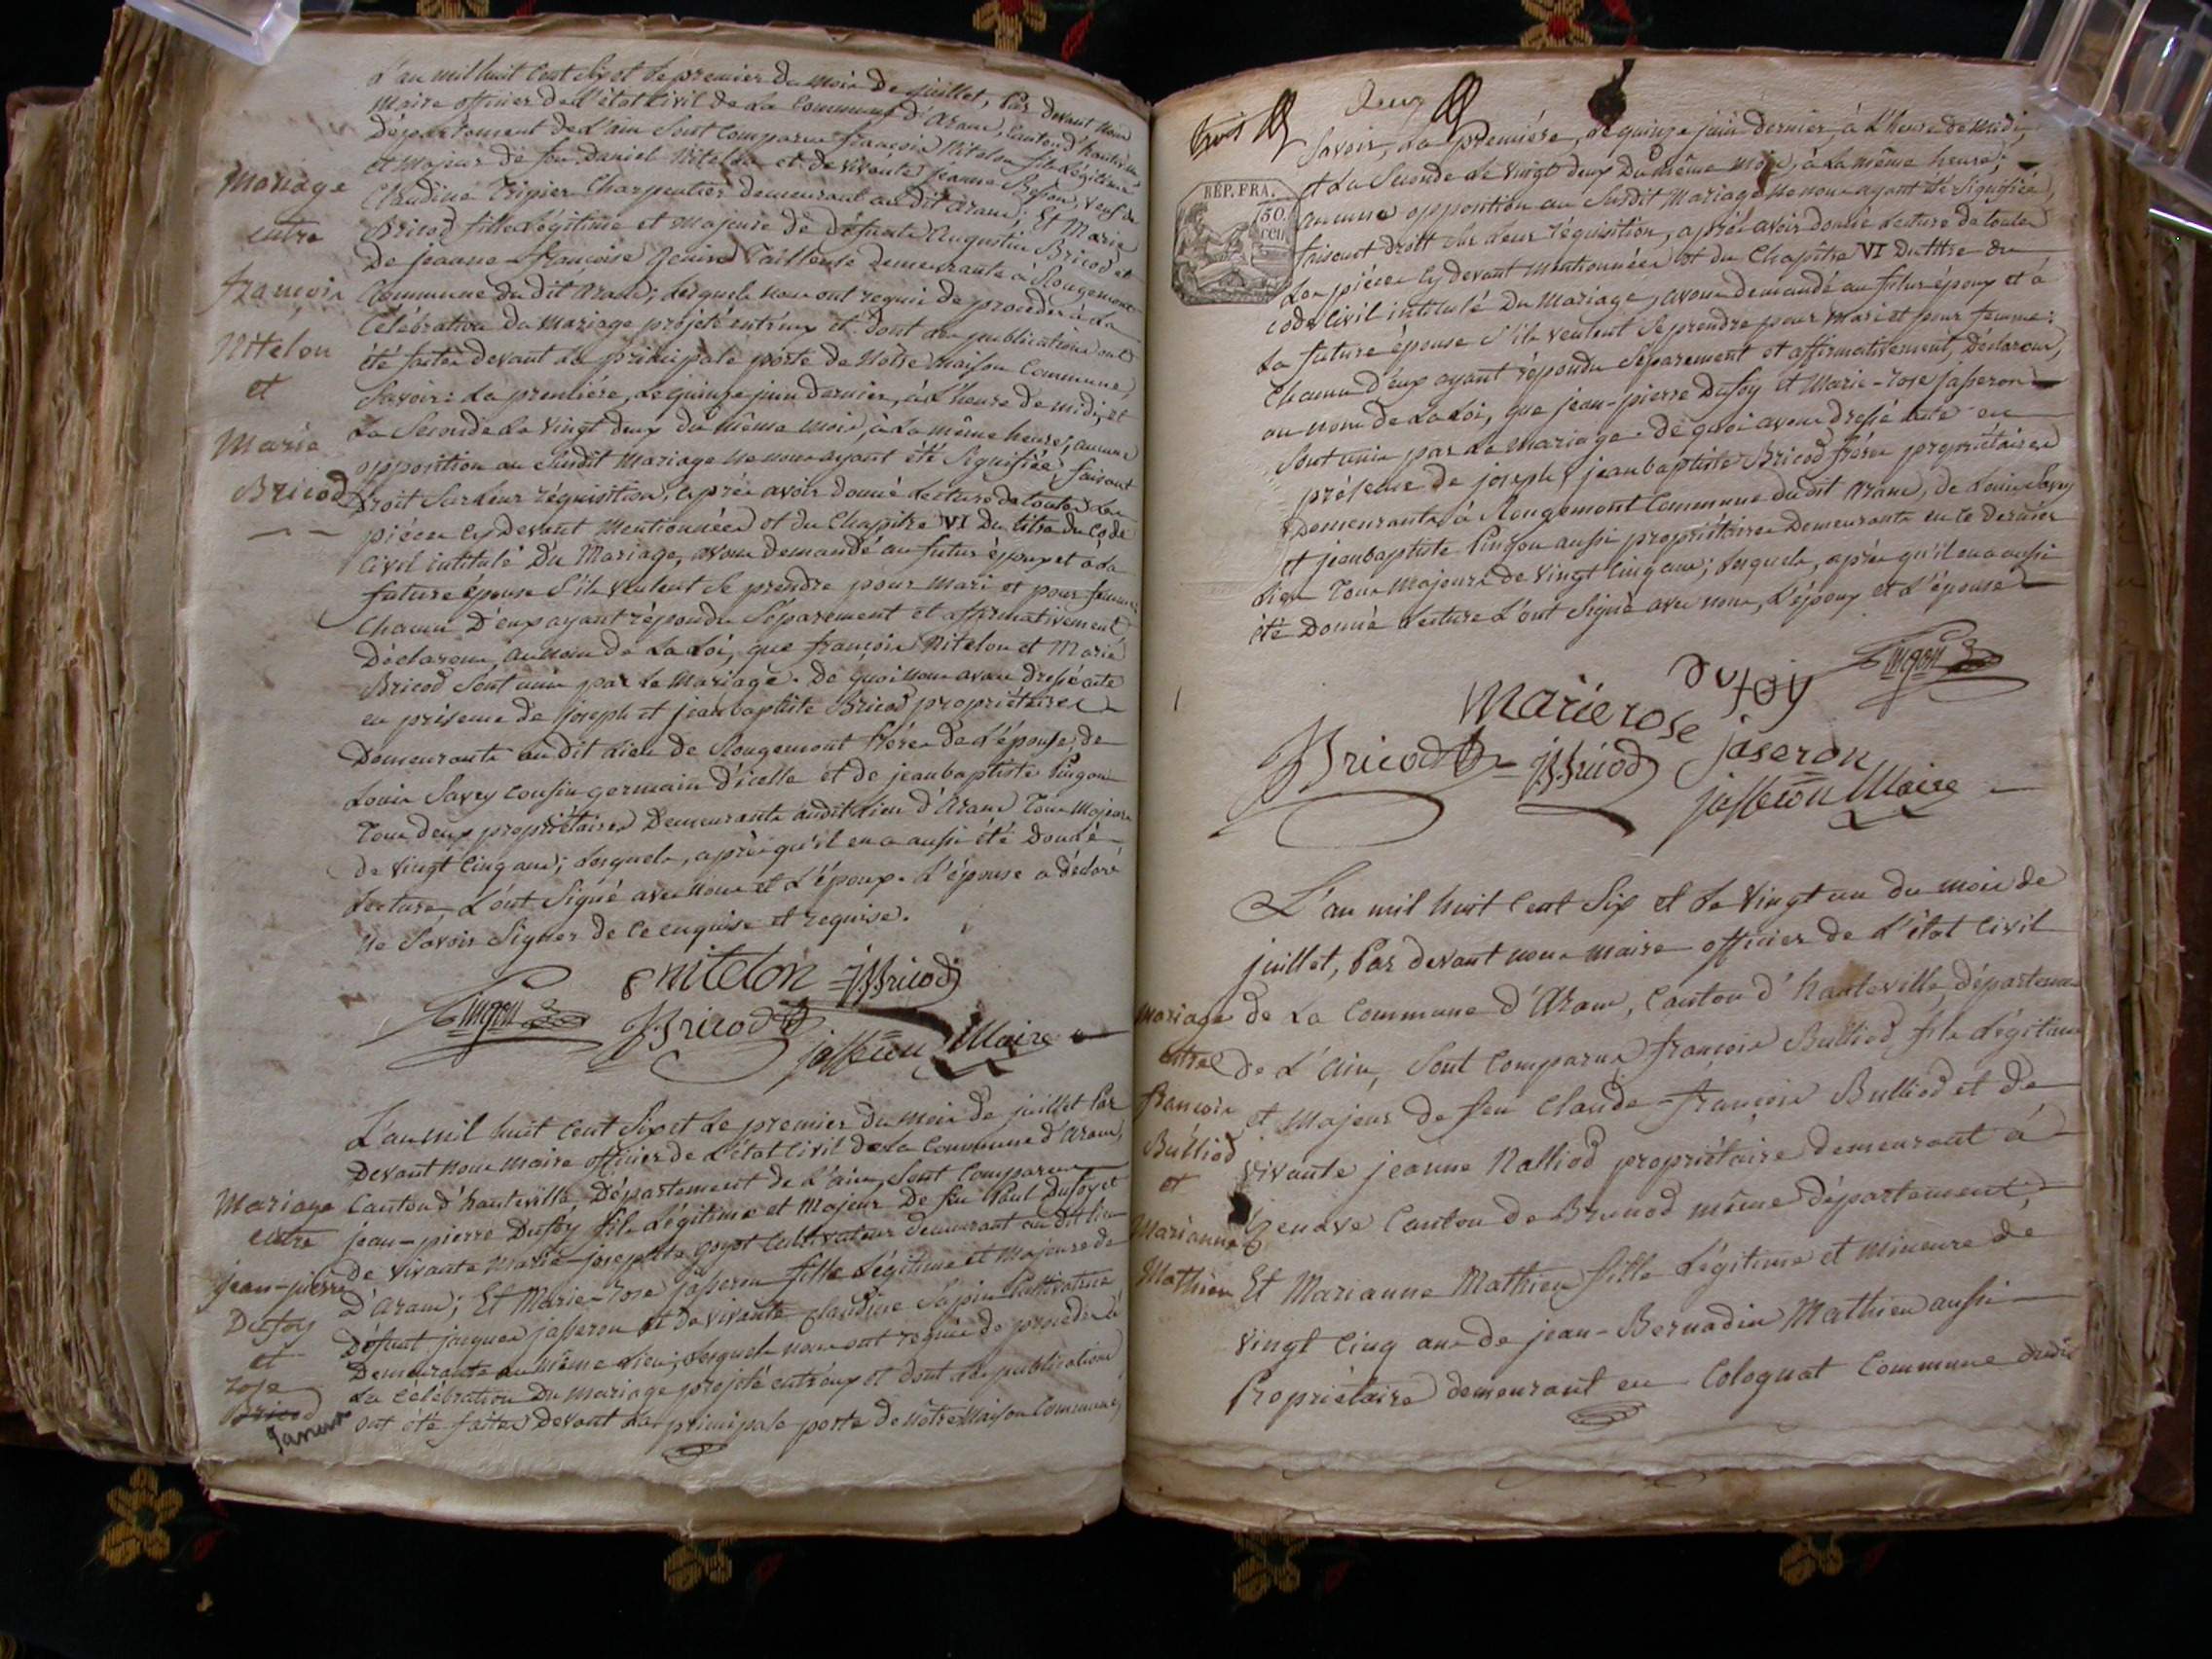 L'an mil huit Cent Six et le premier du mois de juillet, Par devant Nous
Maire officier de l'état Civil de la Commune d'Aranc, Canton d'hauteville
Département de l'ain Sont Comparus françois Nitelon fils Légitime
et Majeur de feu Daniel Nitelon et de vivante jeanne Besson, veuf de
Claudine Tripier Charpentier demeurant au dit Aranc; Et Marie
Bricod fille Légitime et Majeure de défunts Augustin Bricod et
De jeanne françoise Tailleuse demeurante à Rougemont
Commune du dit Aranc; Lesquels nous ont requis de procéder à La
Célébration du Mariage projeté entr'eux et dont les publications ont
été faites devant La principale porte de Notre Maison Commune,
Savoir: La première, le quinze juin dernier, à L'heure de midi, et
La Seconde Le vingt deux du même mois, à La même heure, aucune
opposition au Susdit Mariage ne nous ayant été Signifiée, faisant
droit Sur Leur réquisition, après avoir donné Lecture de toutes Les
pièces Cy devant Mentionnées et du Chapitre VI Du titre du Code
Civil intitulé Du Mariage, avons demandé au futur époux et à La
future épouse S'ils veulent Se prendre pour Mari et pour femme:
Chacun D'eux ayant répondu Séparement et affirmativement
Déclarons, au nom de La Loi, que françois Nitelon et Marie
Bricod Sont unis par Le Mariage. De quoi nous avons dressé acte
en présence de joseph et jean baptiste Bricod propriétaires
Demeurants au dit Lieu de Rougemont frères de L'épouse, de
Louis Savey Cousin germain d'icelle et de jean baptiste Pingon
Tous deux propriétaires Demeurants audit Lieu d'Aranc Tous Majeurs
de vingt Cinq ans; Lesquels, après qu'il en a aussi été Donné
Lecture, L'ont Signé avec nous et L'époux. L'épouse a déclaré
ne Savoir Signer de ce enquise et requise.
nitelon JBricod
Pingon JBricod jasseron Maire
Mariage
entre
françois
Nitelon
et
Marie
Bricod
L'an mil huit Cent Six et Le premier du mois de juillet Par
Devant nous Maire officier de L'état Civil de La Commune d'Aranc,
Canton d'hauteville, Département de L'ain, Sont Comparus
jean-pierre Dufoy fils Légitime et Majeur De feu Paul Dufoy et
de vivante Marie-josephte goyot Cultivateur demeurant au dit Lieu
d'Aranc; Et Marie-rose jasseron fille Légitime et Majeure de
Défunt jacques jasseron et de vivante Claudine Sapin Cultivatrice
Demeurante au même Lieu; Lesquels nous ont requis de procéder à
La Célébration Du Mariage projeté entr'eux et dont Les publications
ont été faites Devant La principale porte de Notre Maison Commune,
Mariage
entre
jean-pierre
Dufoy
et
rose
Bricod
Savoir, La première, Le quinze juin dernier, à L'heure de midi,
et La Seconde Le vingt deux Du même Mois, à La même heure;
aucune opposition au Susdit Mariage ne nous ayant été Signifiée,
faisant droit Sur Leur réquisition, après avoir donné Lecture de toutes
Les pièces Cy devant Mentionnées et du Chapitre VI Du titre du
Code Civil intitulé Du Mariage, avons demandé au futur époux et à
La future épouse S'ils veulent Se prendre pour Mari et pour femme:
Chacun D'eux ayant répondu Séparement et affirmativement, Déclarons,
au nom de La Loi, que jean-pierre Dufoy et Marie-rose jasseron
Sont unis par Le Mariage. De quoi avons dressé acte en
présence de joseph & jean baptiste Bricod frères propriétaires
Demeurants à Rougemont Commune du dit Aranc, de Louis Savey
et jean baptiste Pingon aussi propriétaires Demeurants en ce dernier
Lieu Tous Majeurs de vingt Cinq ans; Lesquels, après qu'il en a aussi
été Donné Lecture L'ont Signé avec nous, L'époux et L'épouse
REP. FRA.
50.
cen
dufoy Pingon
Marie rose jaseron
JBricod JBricod
jasseron Maire
L'an mil huit Cent Six et Le vingt un du mois de
juillet, Par devant nous maire officier de L'état Civil
de La Commune d'Aranc, Canton d'hauteville, département
de L'Ain, Sont Comparus françois Bulliod fils Légitime
et Majeur de feu Claude-françois Bulliod et de
vivante jeanne Nalliod propriétaire demeurant à
Izenave Canton de Brenod même département,
Et Marianne Mathieu fille Légitime et Mineure de
vingt Cinq ans de jean-Bernadin Mathieu aussi
Propriétaire demeurant en Colognat Commune dudit
Mariage
entre
françois
Bulliod
et
Marianne
Mathieu